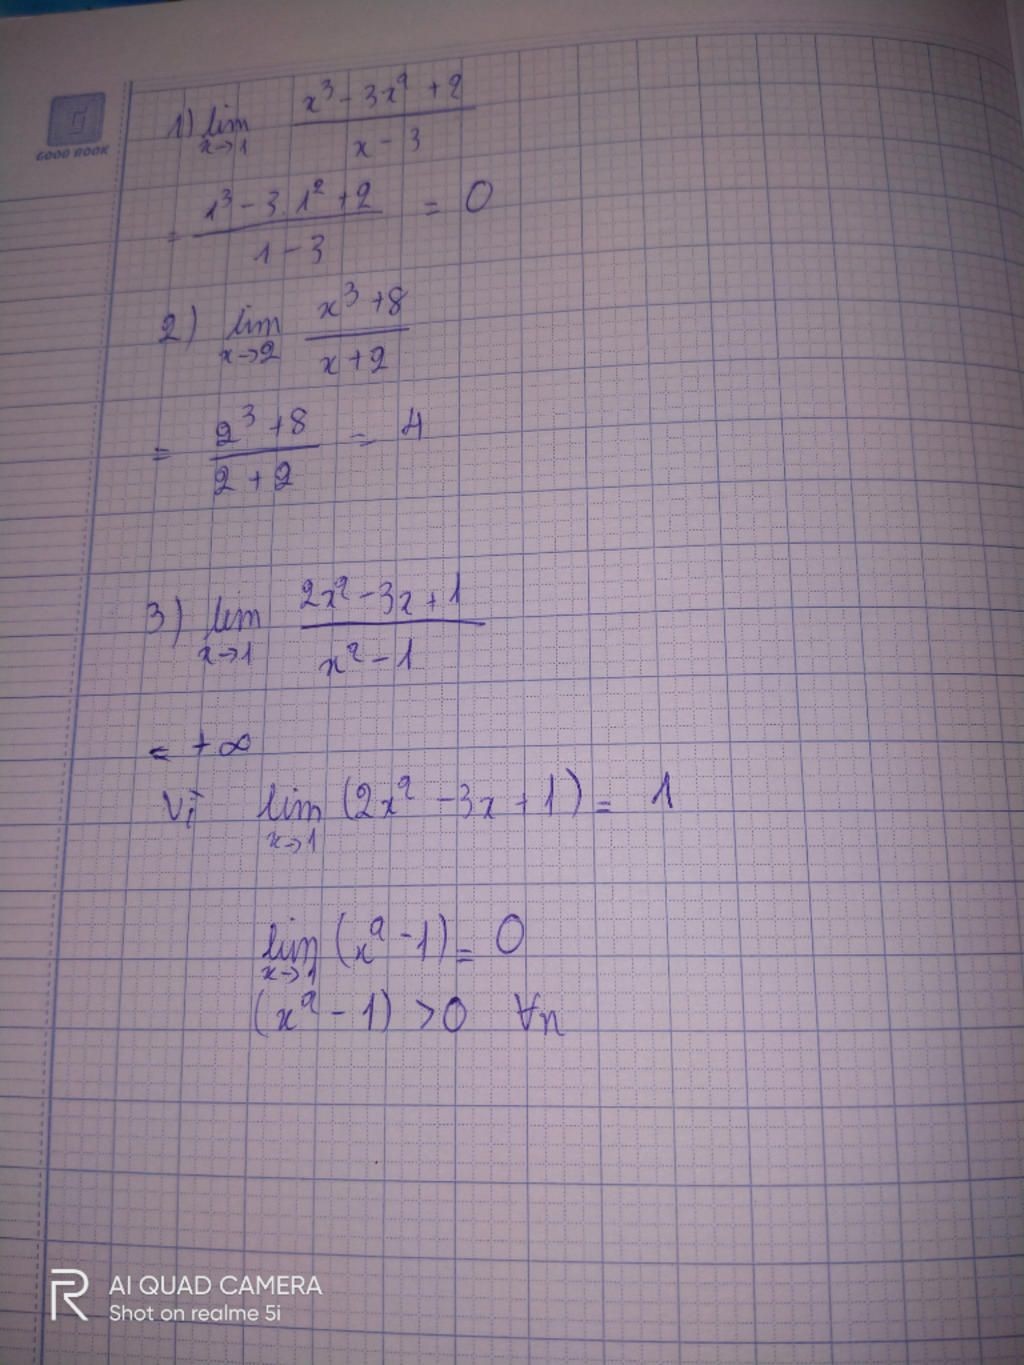 GOOD BOOK
1) lim x→1 (x³ - 3x² + 2)/(x - 3)
= (1³ - 3.1² + 2)/(1 - 3) = 0
2) lim x→2 (x³ + 8)/(x + 2)
= (2³ + 8)/(2 + 2) = 4
3) lim x→1 (2x² - 3x + 1)/(x² - 1)
= +∞
Vì lim x→1 (2x² - 3x + 1) = 1
lim x→1 (x² - 1) = 0
(x² - 1) > 0 ∀n
AI QUAD CAMERA
Shot on realme 5i